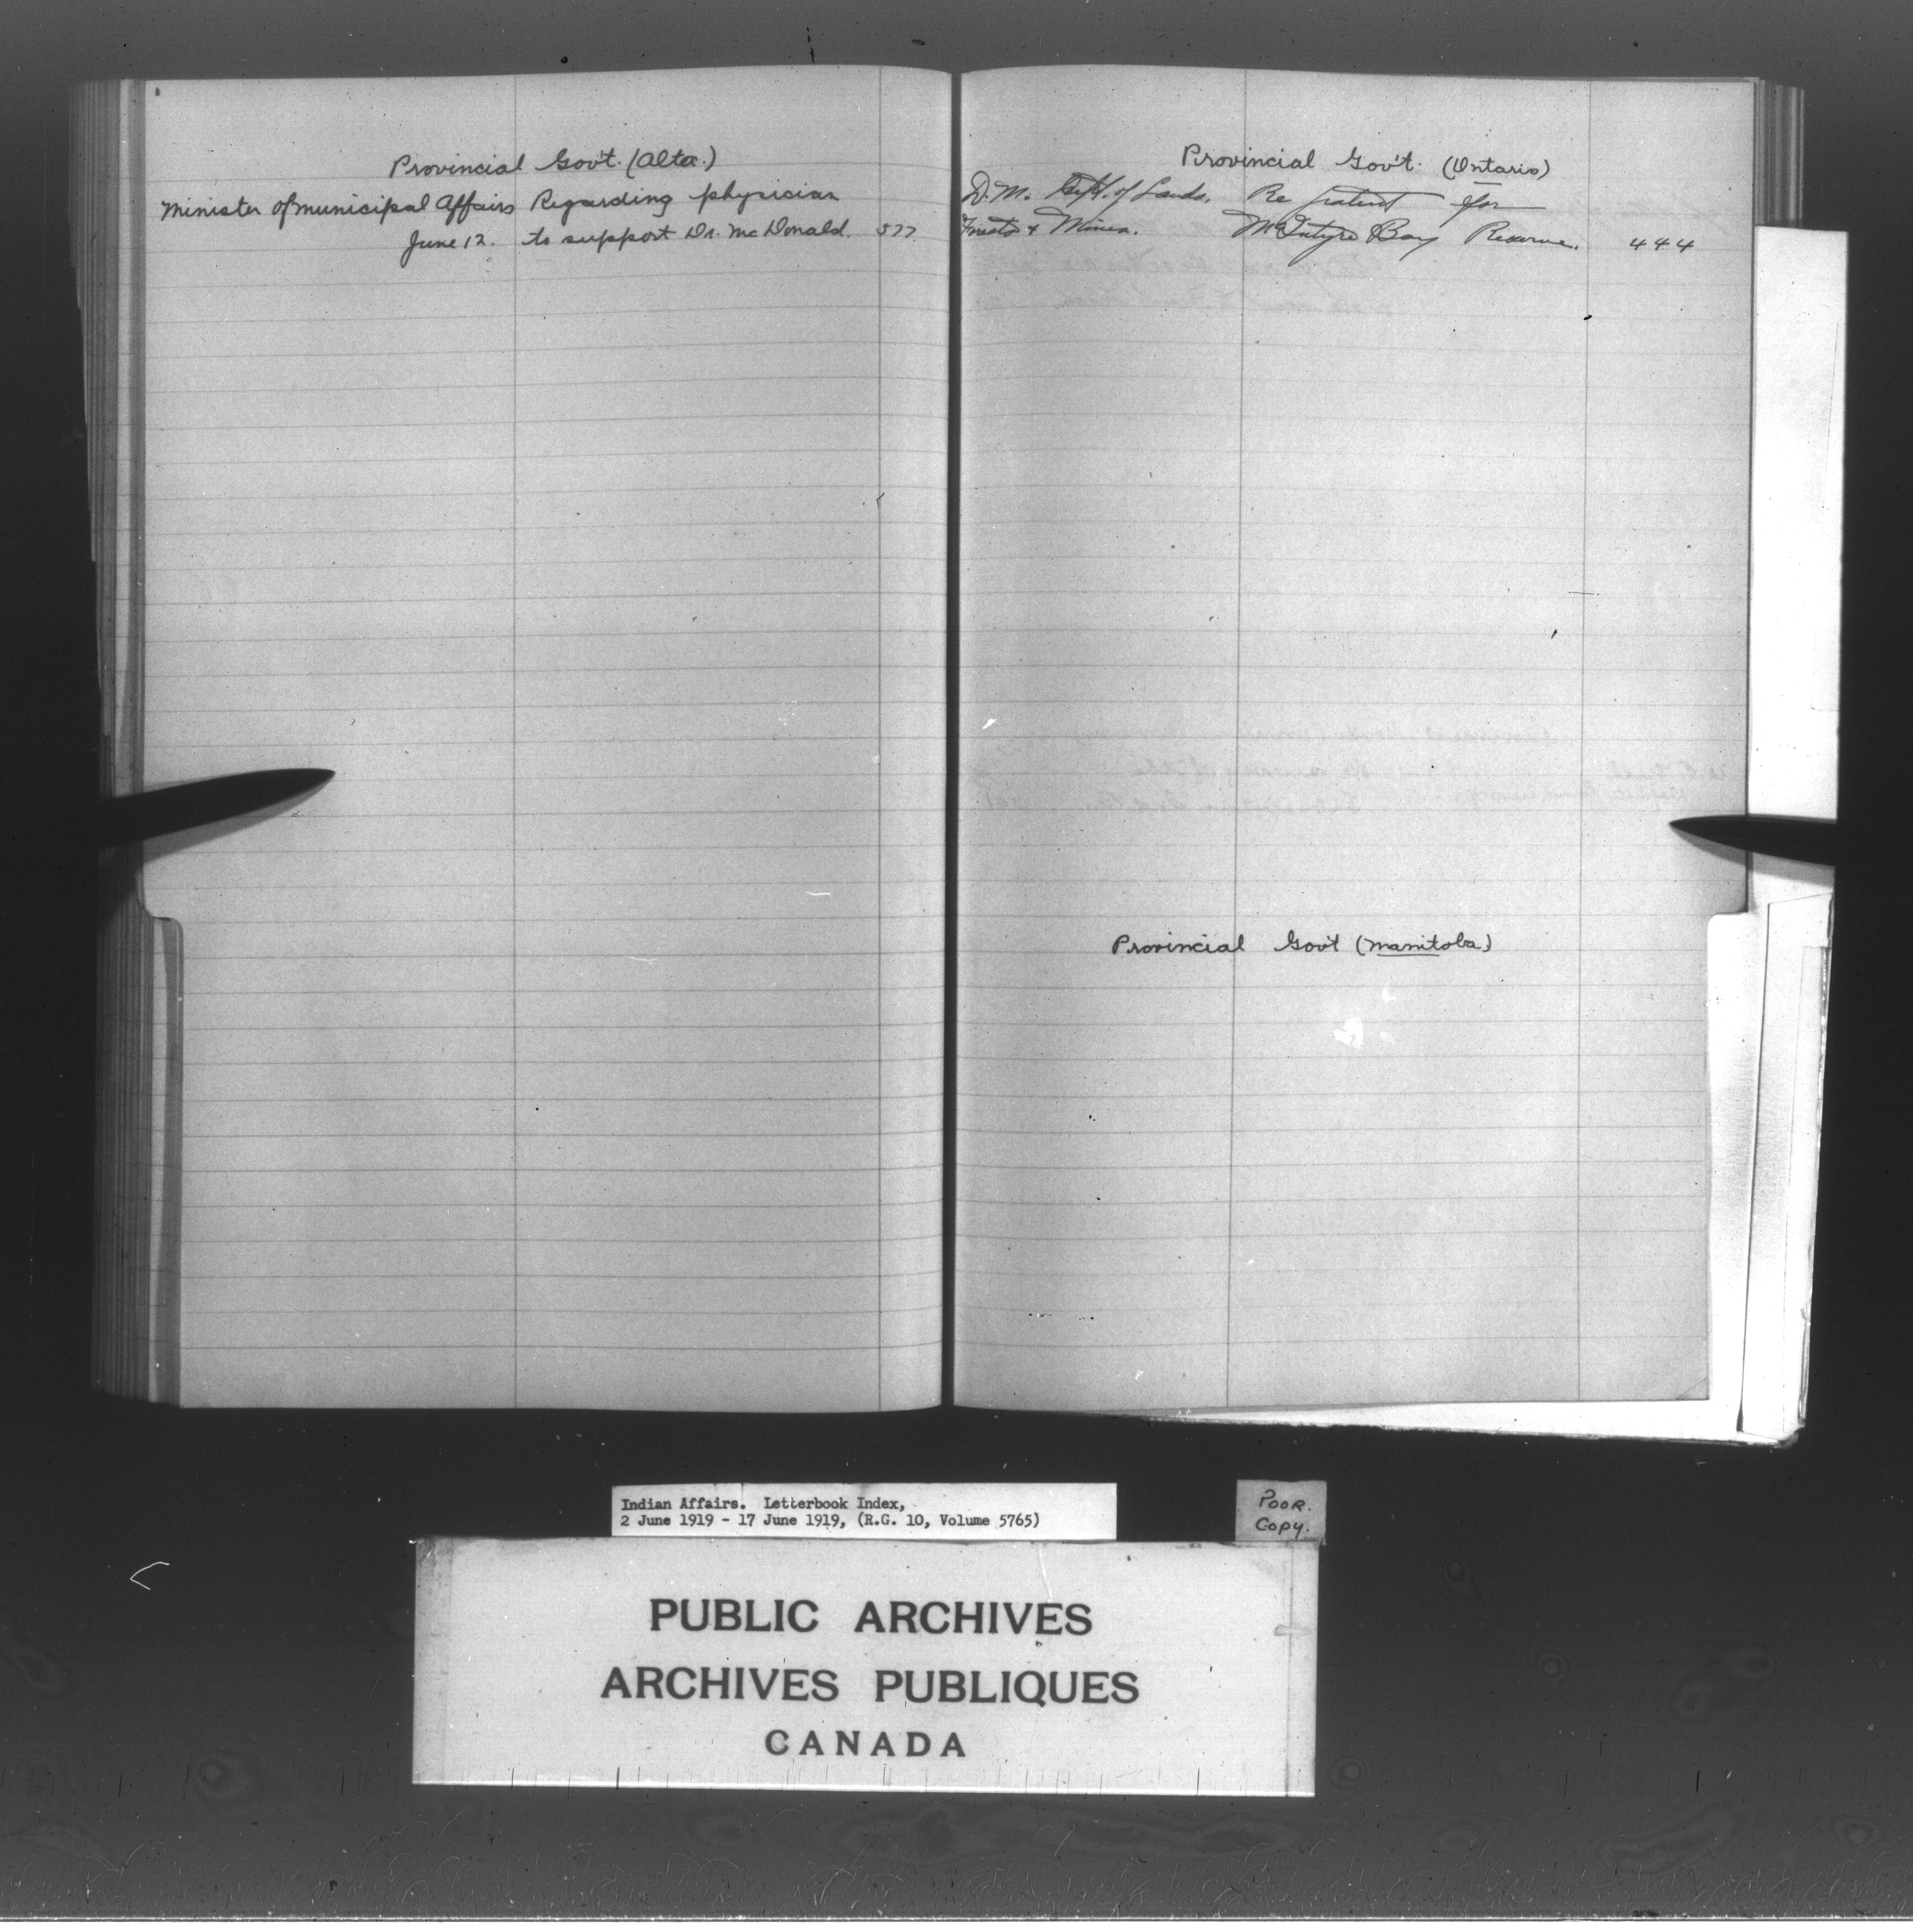 Provincial Gov't. (Alta.)
Minister of Municipal Affairs Regarding physician
June 12. to support Dr. McDonald. 577.
Provincial Gov't. (Ontario)
D.M. Dept. of Lands, Re patent for
Forests & Mines. McIntyre Bay Reserve. 444
Provincial Gov't (Manitoba)
Indian Affairs. Letterbook Index,
2 June 1919 - 17 June 1919, (R.G. 10, Volume 5765)
POOR.
COPY.
PUBLIC ARCHIVES
ARCHIVES PUBLIQUES
CANADA